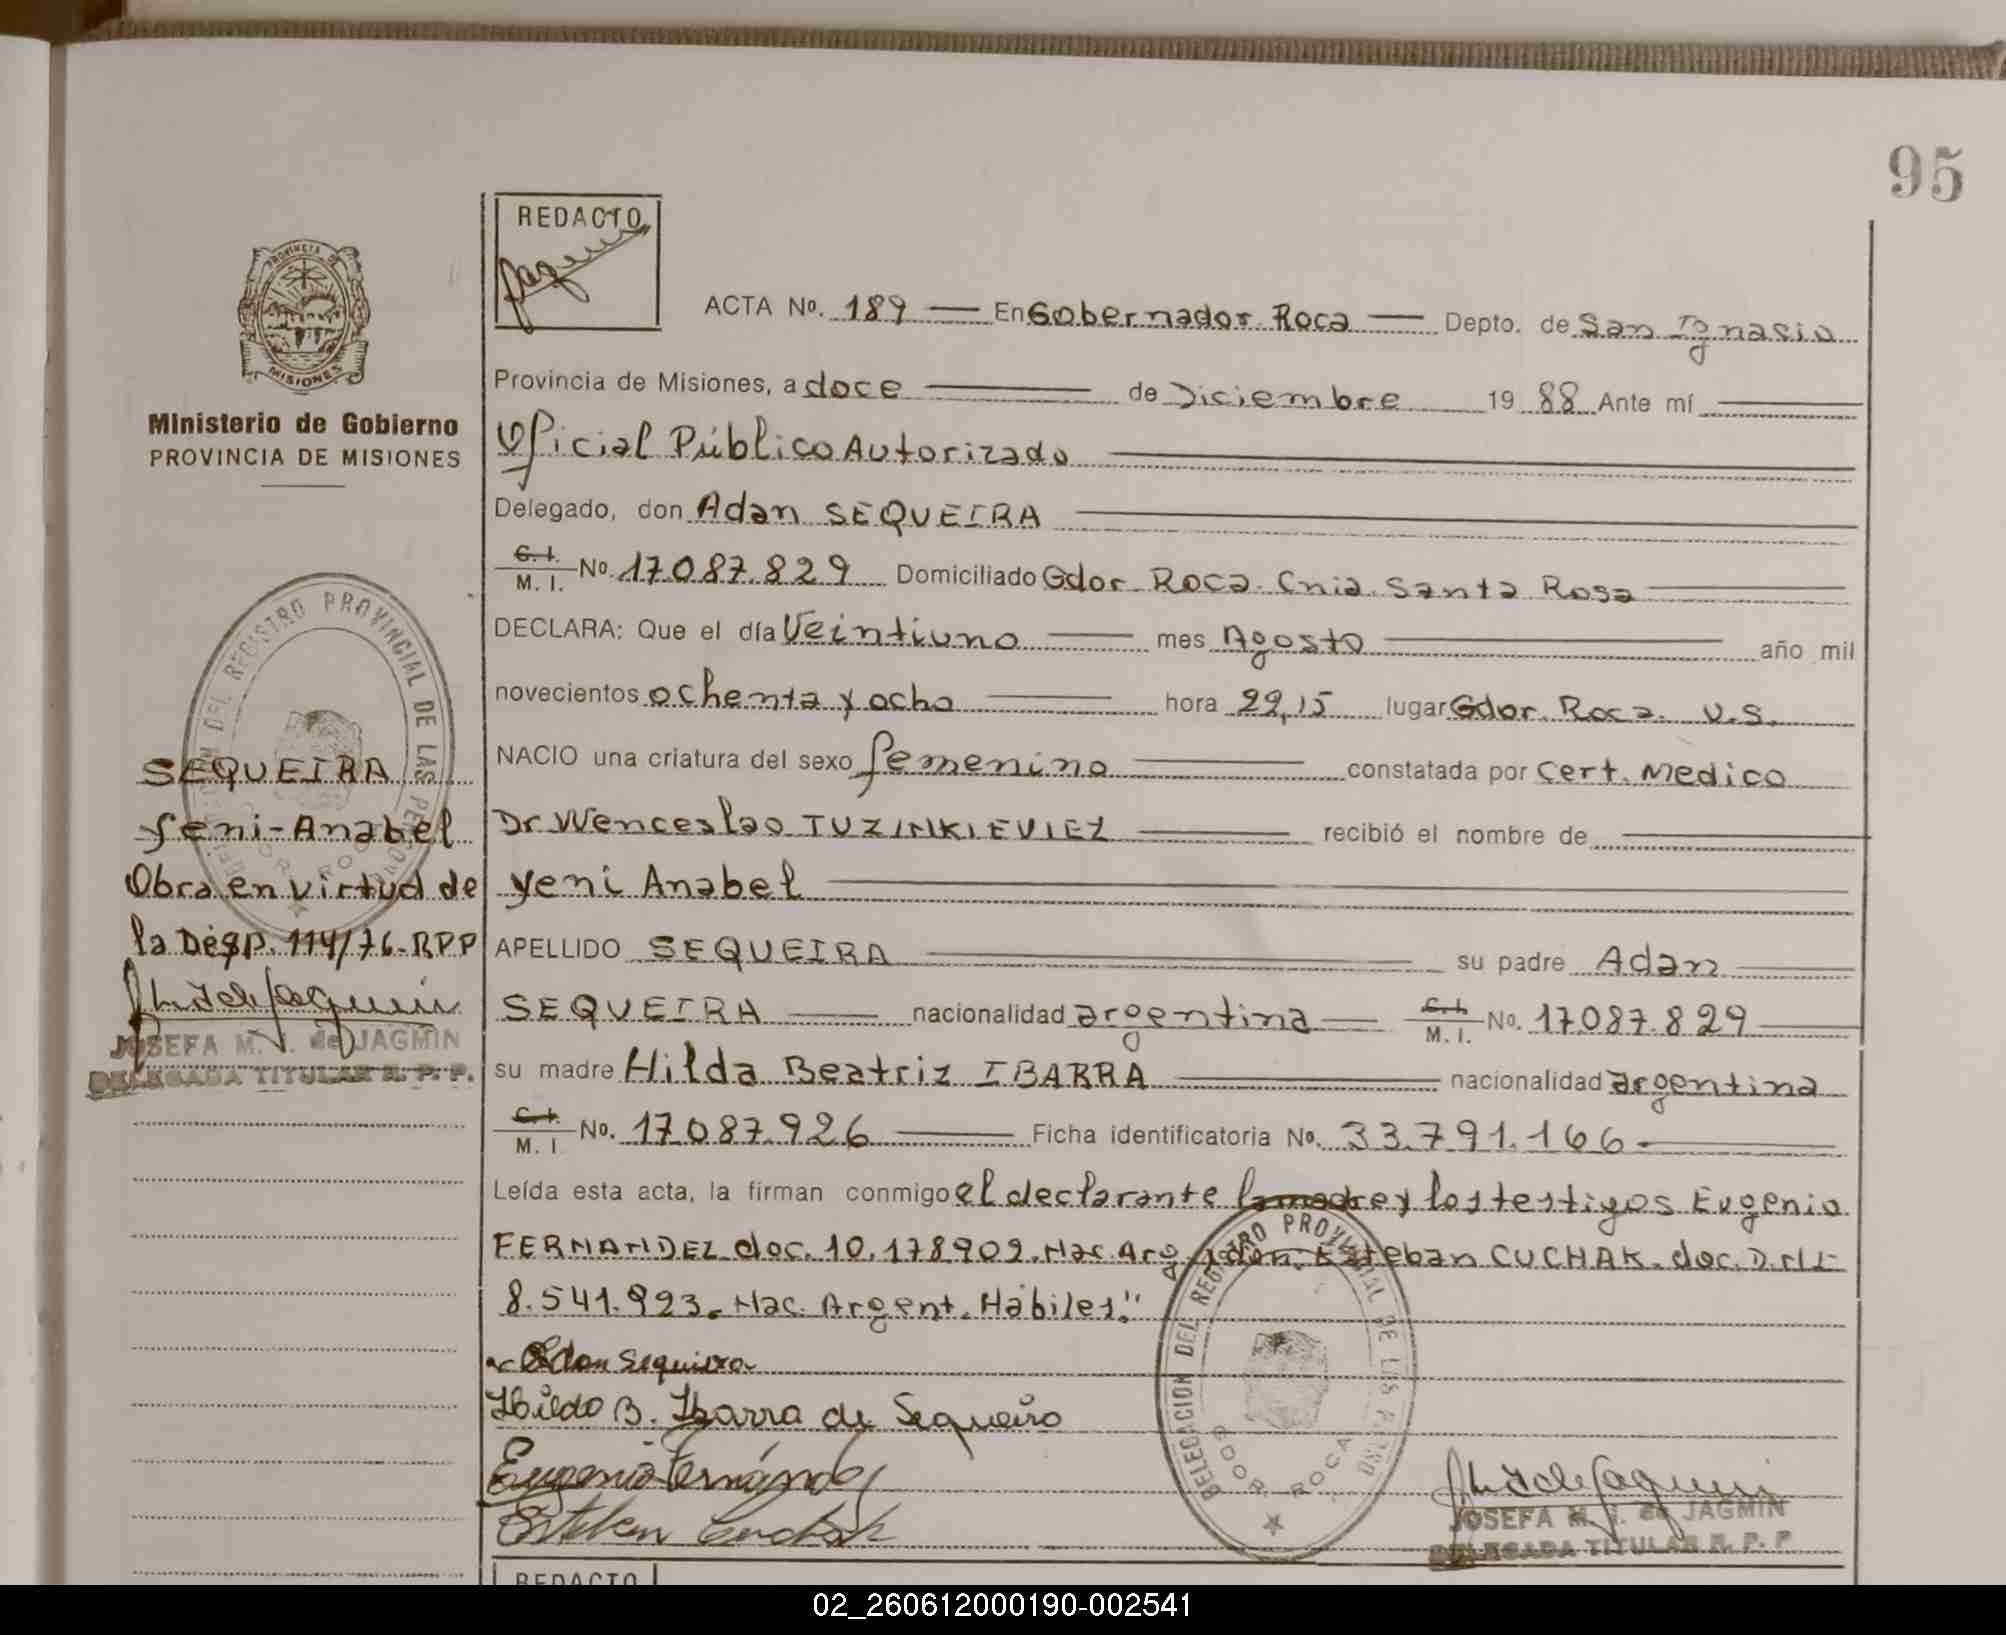 95
REDACTO
ACTA No. 189 — En Gobernador Roca — Depto. de San Ignasio
PROVINCIA DE
MISIONES
Ministerio de Gobierno
PROVINCIA DE MISIONES
Provincia de Misiones, a doce — de Diciembre 19 88 Ante mí —
Oficial Público Autorizado —
Delegado, don Adan SEQUEIRA —
C. I.
M. I. No. 17.087.829 Domiciliado Gdor. Roca. Cnia. Santa Rosa —
DECLARA: Que el día Veintiuno — mes Agosto — año mil
novecientos ochenta y ocho — hora 22,15 lugar Gdor. Roca. U.S.
NACIO una criatura del sexo femenino — constatada por Cert. Medico
Dr Wenceslao TUZINKIEVIEZ — recibió el nombre de —
yeni Anabel —
APELLIDO SEQUEIRA — su padre Adan —
SEQUEIRA — nacionalidad argentina — C. I.
M. I. No. 17.087.829 —
su madre Hilda Beatriz IBARRA — nacionalidad argentina
C. I.
M. I No. 17.087.926 — Ficha identificatoria No. 33.791.166 —
Leída esta acta, la firman conmigo el declarante la madre y los testigos Eugenio
FERNANDEZ doc. 10.178909. Nac. Arg. y don Esteban CUCHAK. doc. D.N.I.
8.541.923. Nac. Argent. Hábiles."
Adan Sequeira
Hilda B. Ibarra de Sequeira
Eugenio Fernández
Esteban Cuchak
DELEGACION DEL REGISTRO PROVINCIAL DE LAS PERSO
GDOR. ROCA
JOSEFA M. I. de JAGMIN
DELEGADA TITULAR R. P. P
REDACTO
DELEGACION DEL REGISTRO PROVINCIAL DE LAS PERSONAS
GDOR. ROCA
SEQUEIRA
Yeni-Anabel
Obra en virtud de
la Desp. 114/76-RPP
JOSEFA M. I. de JAGMIN
DELEGADA TITULAR R. P. P.
02_260612000190-002541